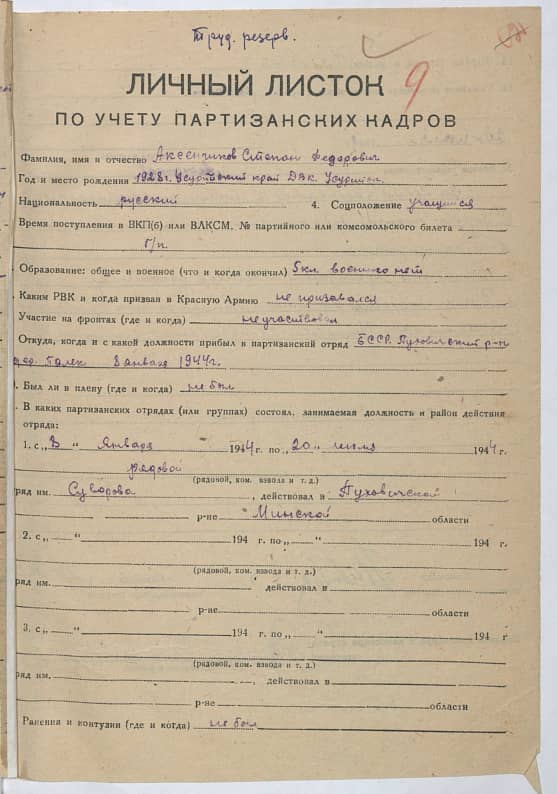 Труд. резерв.
9
ЛИЧНЫЙ ЛИСТОК
ПО УЧЕТУ ПАРТИЗАНСКИХ КАДРОВ
Фамилия, имя и отчество Аксенчиков Степан Федорович
Год и место рождения 1928 г. Уссурийский край ДВК. Уссурийск.
Национальность русский 4. Соцположение учащийся
Время поступления в ВКП(б) или ВЛКСМ. № партийного или комсомольского билета
б/п.
Образование: общее и военное (что и когда окончил) 5 кл. военного нет
Каким РВК и когда призван в Красную Армию не призывался
Участие на фронтах (где и когда) не участвовал
Откуда, когда и с какой должности прибыл в партизанский отряд БССР. Пуховичский р-н
дер. 8 января 1944 г.
Был ли в плену (где и когда) не был
В каких партизанских отрядах (или группах) состоял, занимаемая должность и район действия
отряда:
1. с „8" Января 1944 г. по „20" июля 1944 г.
рядовой
(рядовой, ком. взвода и т. д.)
ряд им. Суворова, действовал в Пуховичской
р-не Минской области
2. с „ " 194 г. по „ " 194 г.
(рядовой, ком. взвода и т. д.)
ряд им. действовал в
р-не области
3. с „ " 194 г. по „ " 194 г
(рядовой, ком. взвода и т. д.)
ряд им. , действовал в
р-не области
Ранения и контузии (где и когда) не был